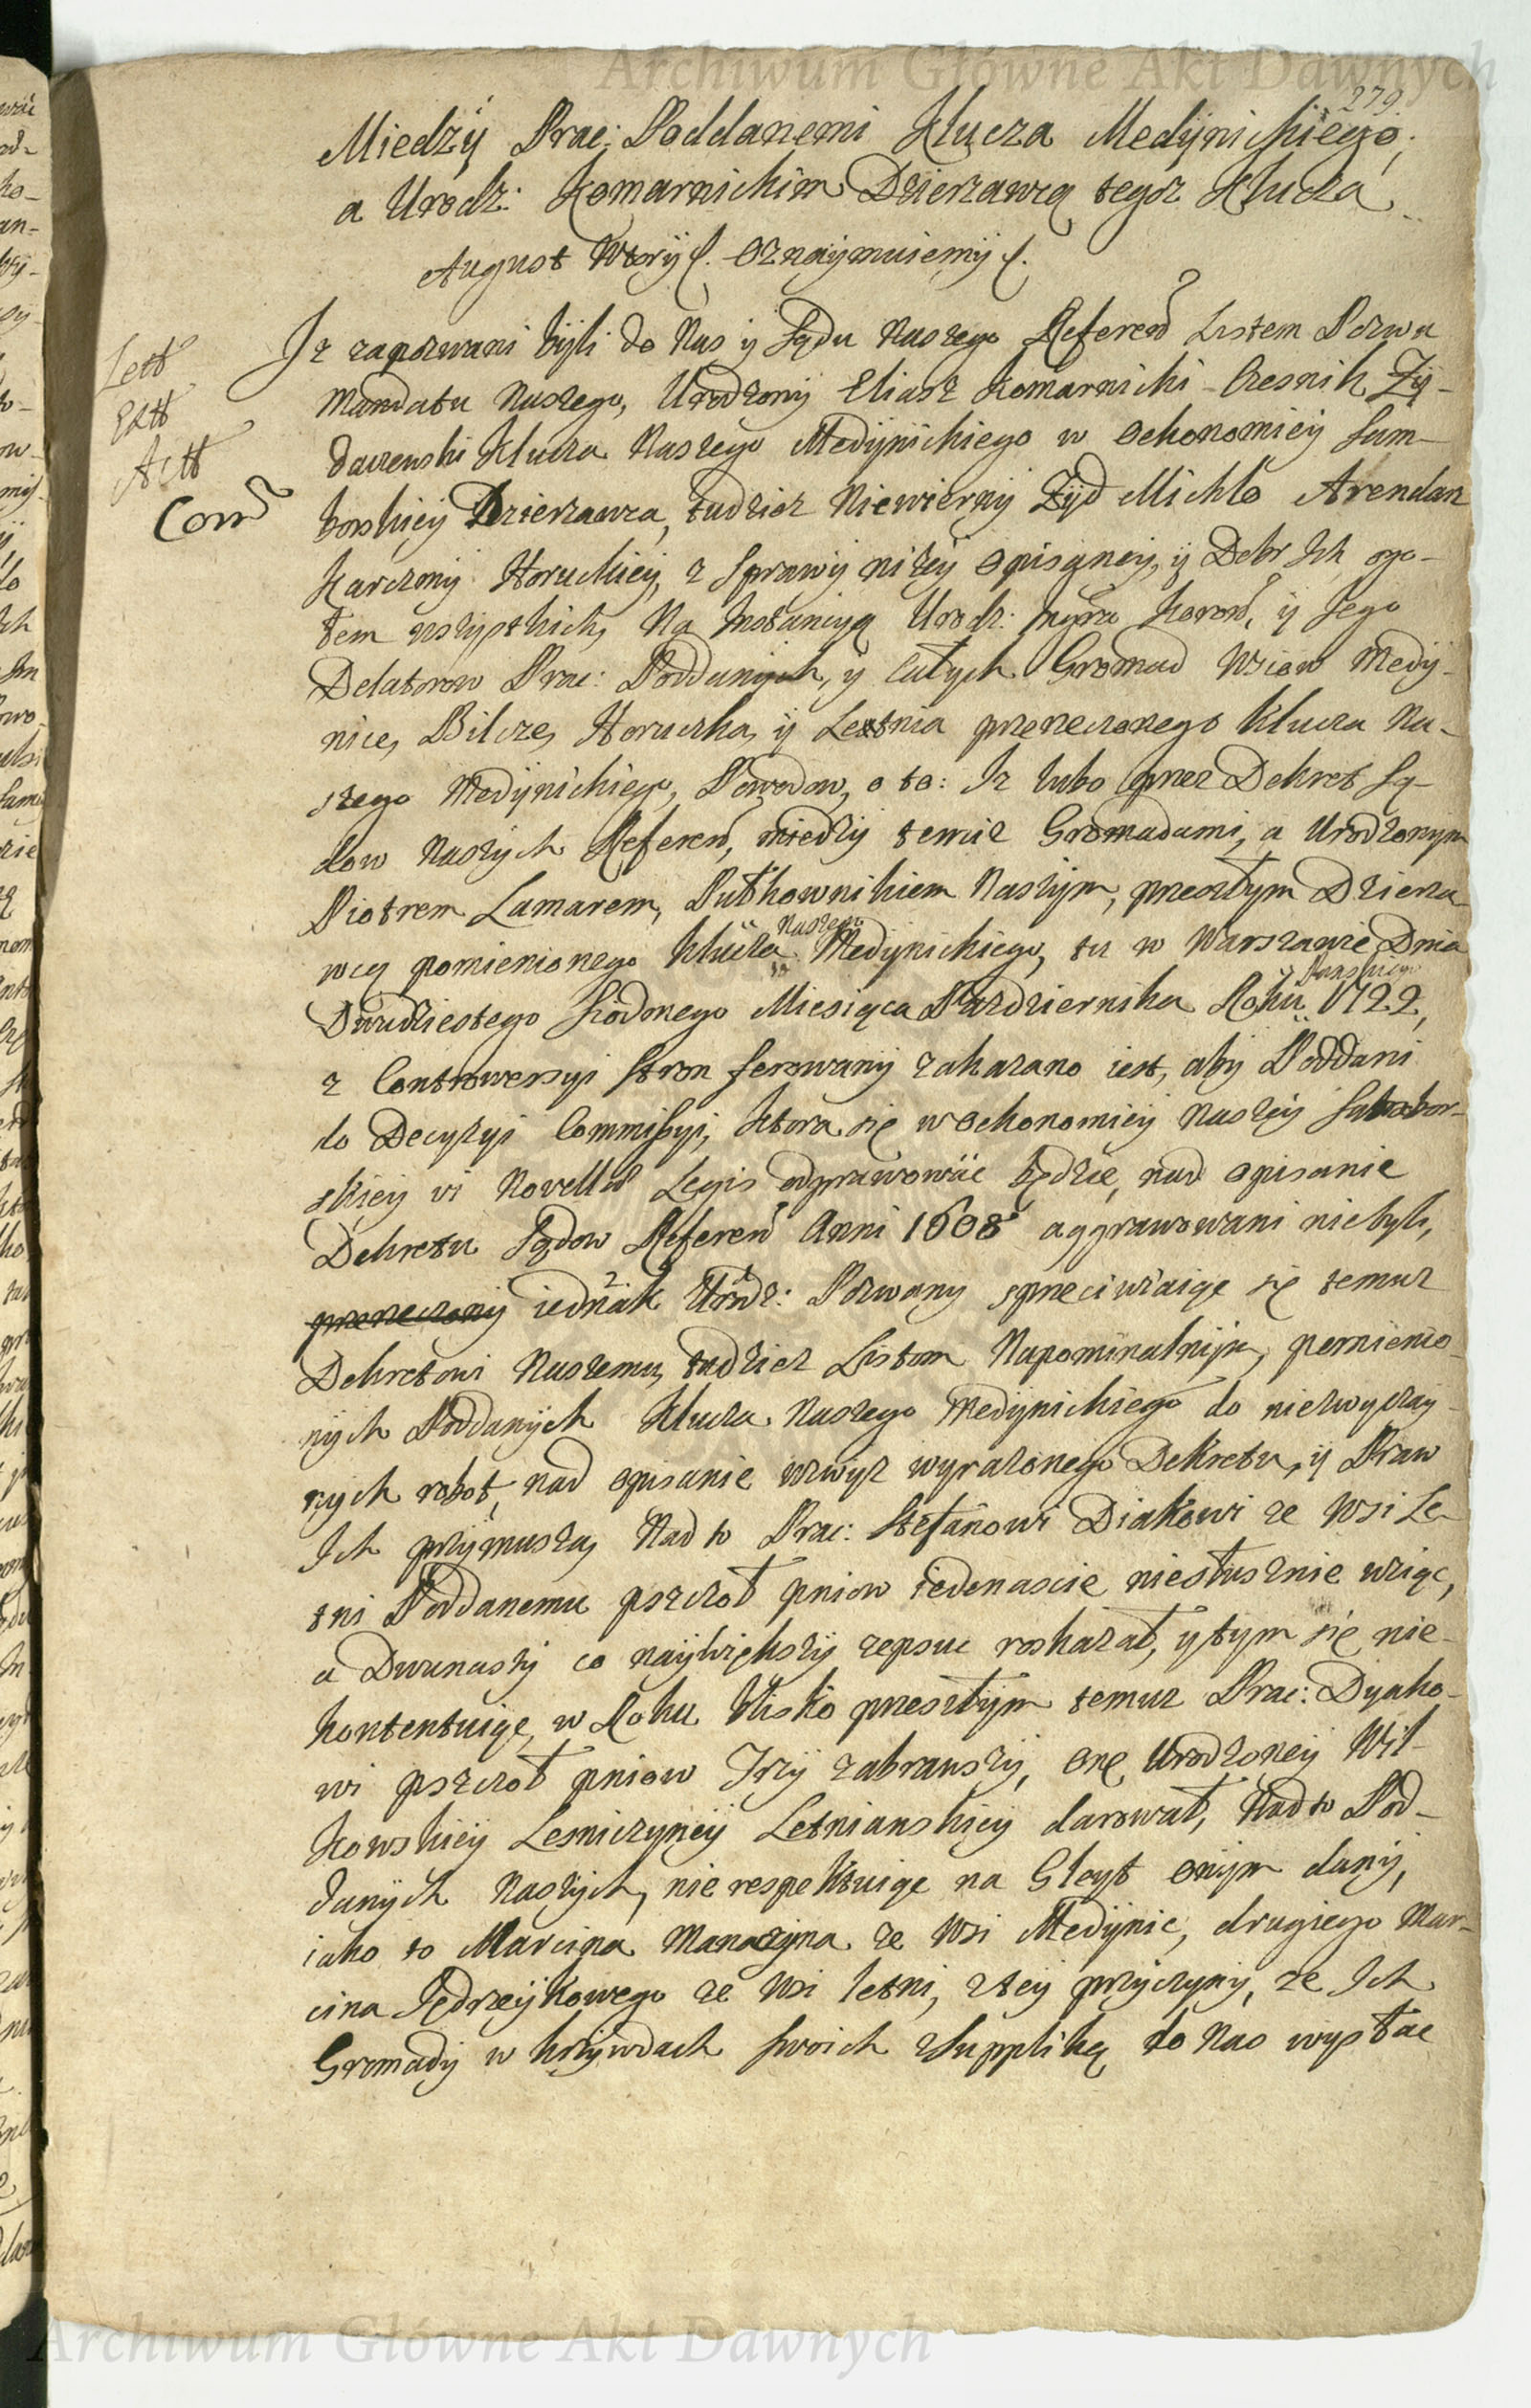 Archiwum Główne Akt Dawnych
279
Miedzÿ Prac: Poddanemi Klucza Medÿnickiego,
a Urodz: Komarnickim Dzierzawcą tegoz Klucza
August Wtorÿ &. Oznaÿmuiemÿ &.
Lect
Extt
Actt
Corr
Iz zapozwani bÿli do Nas ÿ Sądu Naszego Referen Listem Pozwu
Mandatu Naszego, Urodzonÿ Eliasz Komarnicki Czesnik Zÿ-
daczewski Klucza Naszego Medÿnickiego w Oekonomieÿ Sam-
borskieÿ Dzierzawca, tudziez Niewiernÿ Zÿd Michlo Arendarz
Karczmÿ Horuckieÿ, z Sprawÿ nizeÿ opisaneÿ, ÿ Dobr Ich ogo-
łem wszystkich, Na Instancyą Urodz: Instÿra Koron, ÿ Jego
Delatorow Prac: Poddanÿch, ÿ całych Gromad Wsiow Medÿ-
nice, Bilcze, Horucka, ÿ Letnia przerzeczonego Klucza Na-
szego Medÿnickiego, Powodow, o to: Iz lubo przez Dekret Są-
dow Naszÿch Referen, miedzÿ temiz Gromadami, a Urodzonym
Piotrem Lamarem, Pułkownikiem Naszÿm, przeszłym Dzierza-
wcą pomienionego Klucza Naszego Medÿnickiego, tu w Warszawie Dnia
Dwudziestego Siodmego Miesiąca Pazdziernika Roku Panskiego 1722,
z Controwersyi Stron ferowanÿ zakazano iest, abÿ Poddani
do Decyzyi Commissyi, Ktora się w Oekonomieÿ Naszeÿ Sambor-
skieÿ vi Novellæ Legis odprawowac będzie, nad opisanie
Dekretu Sądow Referen Anni 1608 aggrawowani niebyli,
przerzeczonÿ iednak Urodz: Pozwany sprzeciwiaiąc się temuz
Dekretowi Naszemu, tudziez Listom Napominalnÿm, pomienio-
nÿch Poddanÿch Klucza Naszego Medÿnickiego do niezwyczaÿ-
nych robot, nad opisanie wzwyz wyrazonego Dekretu, ÿ Praw
Ich przÿmusza, Nad to Prac: Stefanowi Diakowi ze Wsi Le-
tni Poddanemu pszczoł pniow iedenascie niesłusznie wziąc,
a Dwunastÿ co naÿwiększÿ zepsuc roskazał, ÿ tym się nie-
kontentuiąc, w Roku blisko przeszłÿm temuz Prac: Dyako-
wi pszczoł pniow Trzÿ zabrawszÿ, one Urodzoneÿ Wil-
kowskieÿ Lesniczyneÿ Letnianskieÿ darował, Nad to Pod-
danÿch Naszÿch, nie respektuiąc na Gleyt onÿm danÿ,
iako to Marcina Manaczyna ze Wsi Medÿnic, drugiego Mar-
cina Jędrzeÿkowego ze Wsi Letni, z teÿ przÿczynÿ, ze Ich
Gromadÿ w krzÿwdach swoich z Suppliką do Nas wysłac
Archiwum Główne Akt Dawnych